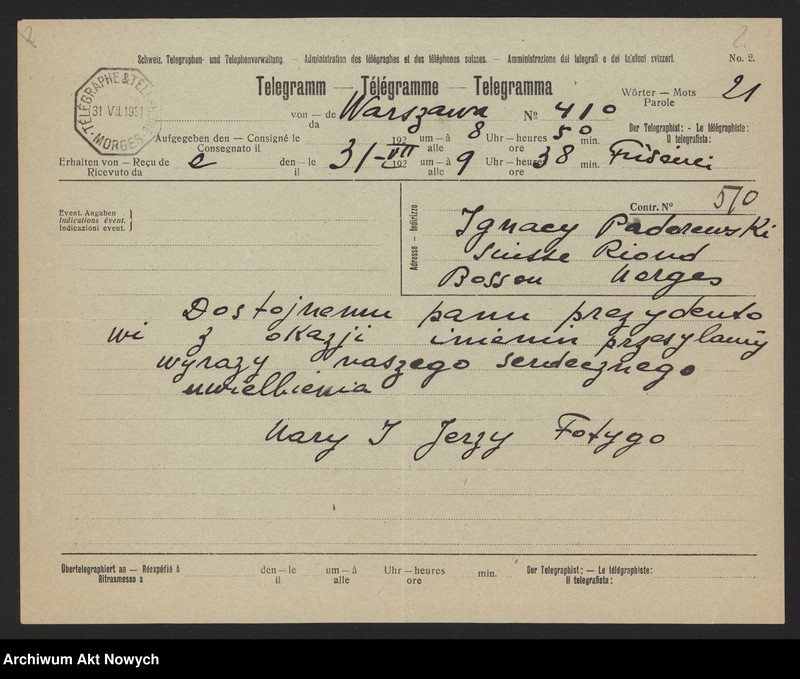 Schweiz. Telegraphen- und Telephonverwaltung. — Administration des télégraphes et des téléphones suisses. — Amministrazione dei telegrafi e dei telefoni svizzeri. No. 2.
Telegramm — Télégramme — Telegramma
Wörter — Mots
Parole
21
TÉLÉGRAPHE & TÉL
31 VII.1931
MORGES
von — de
da
Warszawa
Nº 410
Aufgegeben den — Consigné le
Consegnato il
192
um — à
alle
8
Uhr — heures
ore
50
min.
Der Telegraphist: - Le télégraphiste:
Il telegrafista:
Erhalten von — Reçu de
Ricevuto da
e
den — le
il
31-VII
192
um — à
alle
9
Uhr — heures
ore
38
min.
Event. Angaben
Indications évent.
Indicazioni event.
Adresse — Indirizzo
Contr. Nº 510
Ignacy Paderewski
Suisse Riond
Bosson Morges
Dostojnemu panu prezydento
wi z okazji imienin przesylamy
wyrazy naszego serdecznego
uwielbienia
Mary I Jerzy Fotygo
Übertelegraphiert an — Réexpédié à
Ritrasmesso a
den — le
il
um — à
alle
Uhr — heures
ore
min.
Der Telegraphist: — Le télégraphiste:
Il telegrafista:
Archiwum Akt Nowych